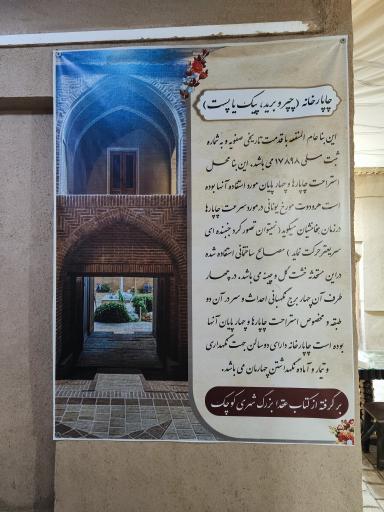 چاپارخانه (چپر و برید، پیک یا پست)
این بنا عام المنفعه با قدمت تاریخی صفویه و به شماره
ثبت ملی ۱۷۸۹۸ می باشد. این بنا محل
استراحت چاپارها و چهارپایان مورد استفاده آنها بوده
است هرودوت مورخ یونانی در مورد سرعت چاپارها
در زمان هخامنشیان میگوید (نمیتوان تصور کرد جنبنده ای
سریعتر حرکت نماید) مصالح ساختمانی استفاده شده
در این مستحدثه خشت گل و چینه می باشد. در چهار
طرف آن چهار برج نگهبانی احداث و سردر آن دو
طبقه و مخصوص استراحت چاپارها و چهارپایان آنها
بوده است چاپارخانه دارای دو سالن جهت نگهداری
و تیمار و آماده نگهداشتن چهارپایان می باشد.
برگرفته از کتاب عقدا بزرگ شهری کوچک